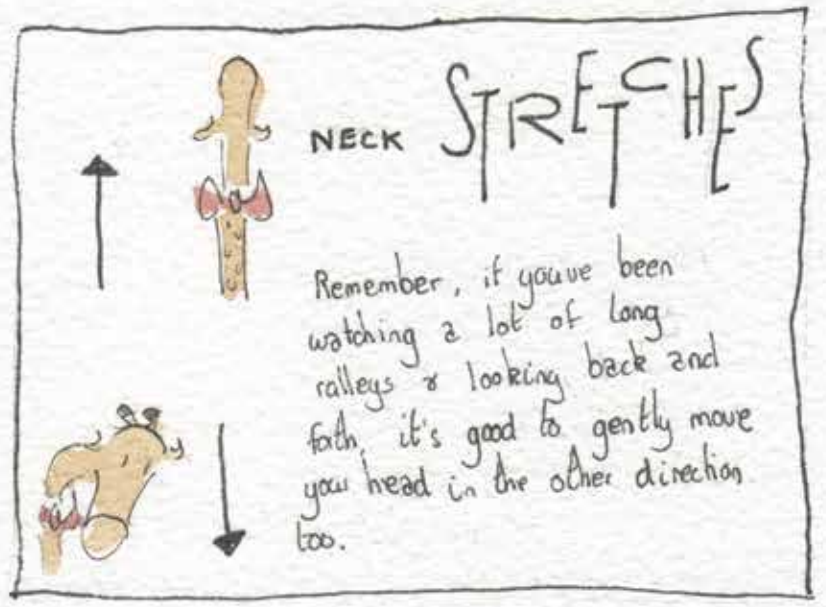 NECK STRETCHES
Remember, if youve been
watching a lot of long
ralleys & looking back and
forth, it's good to gently move
your head in the other direction
too.